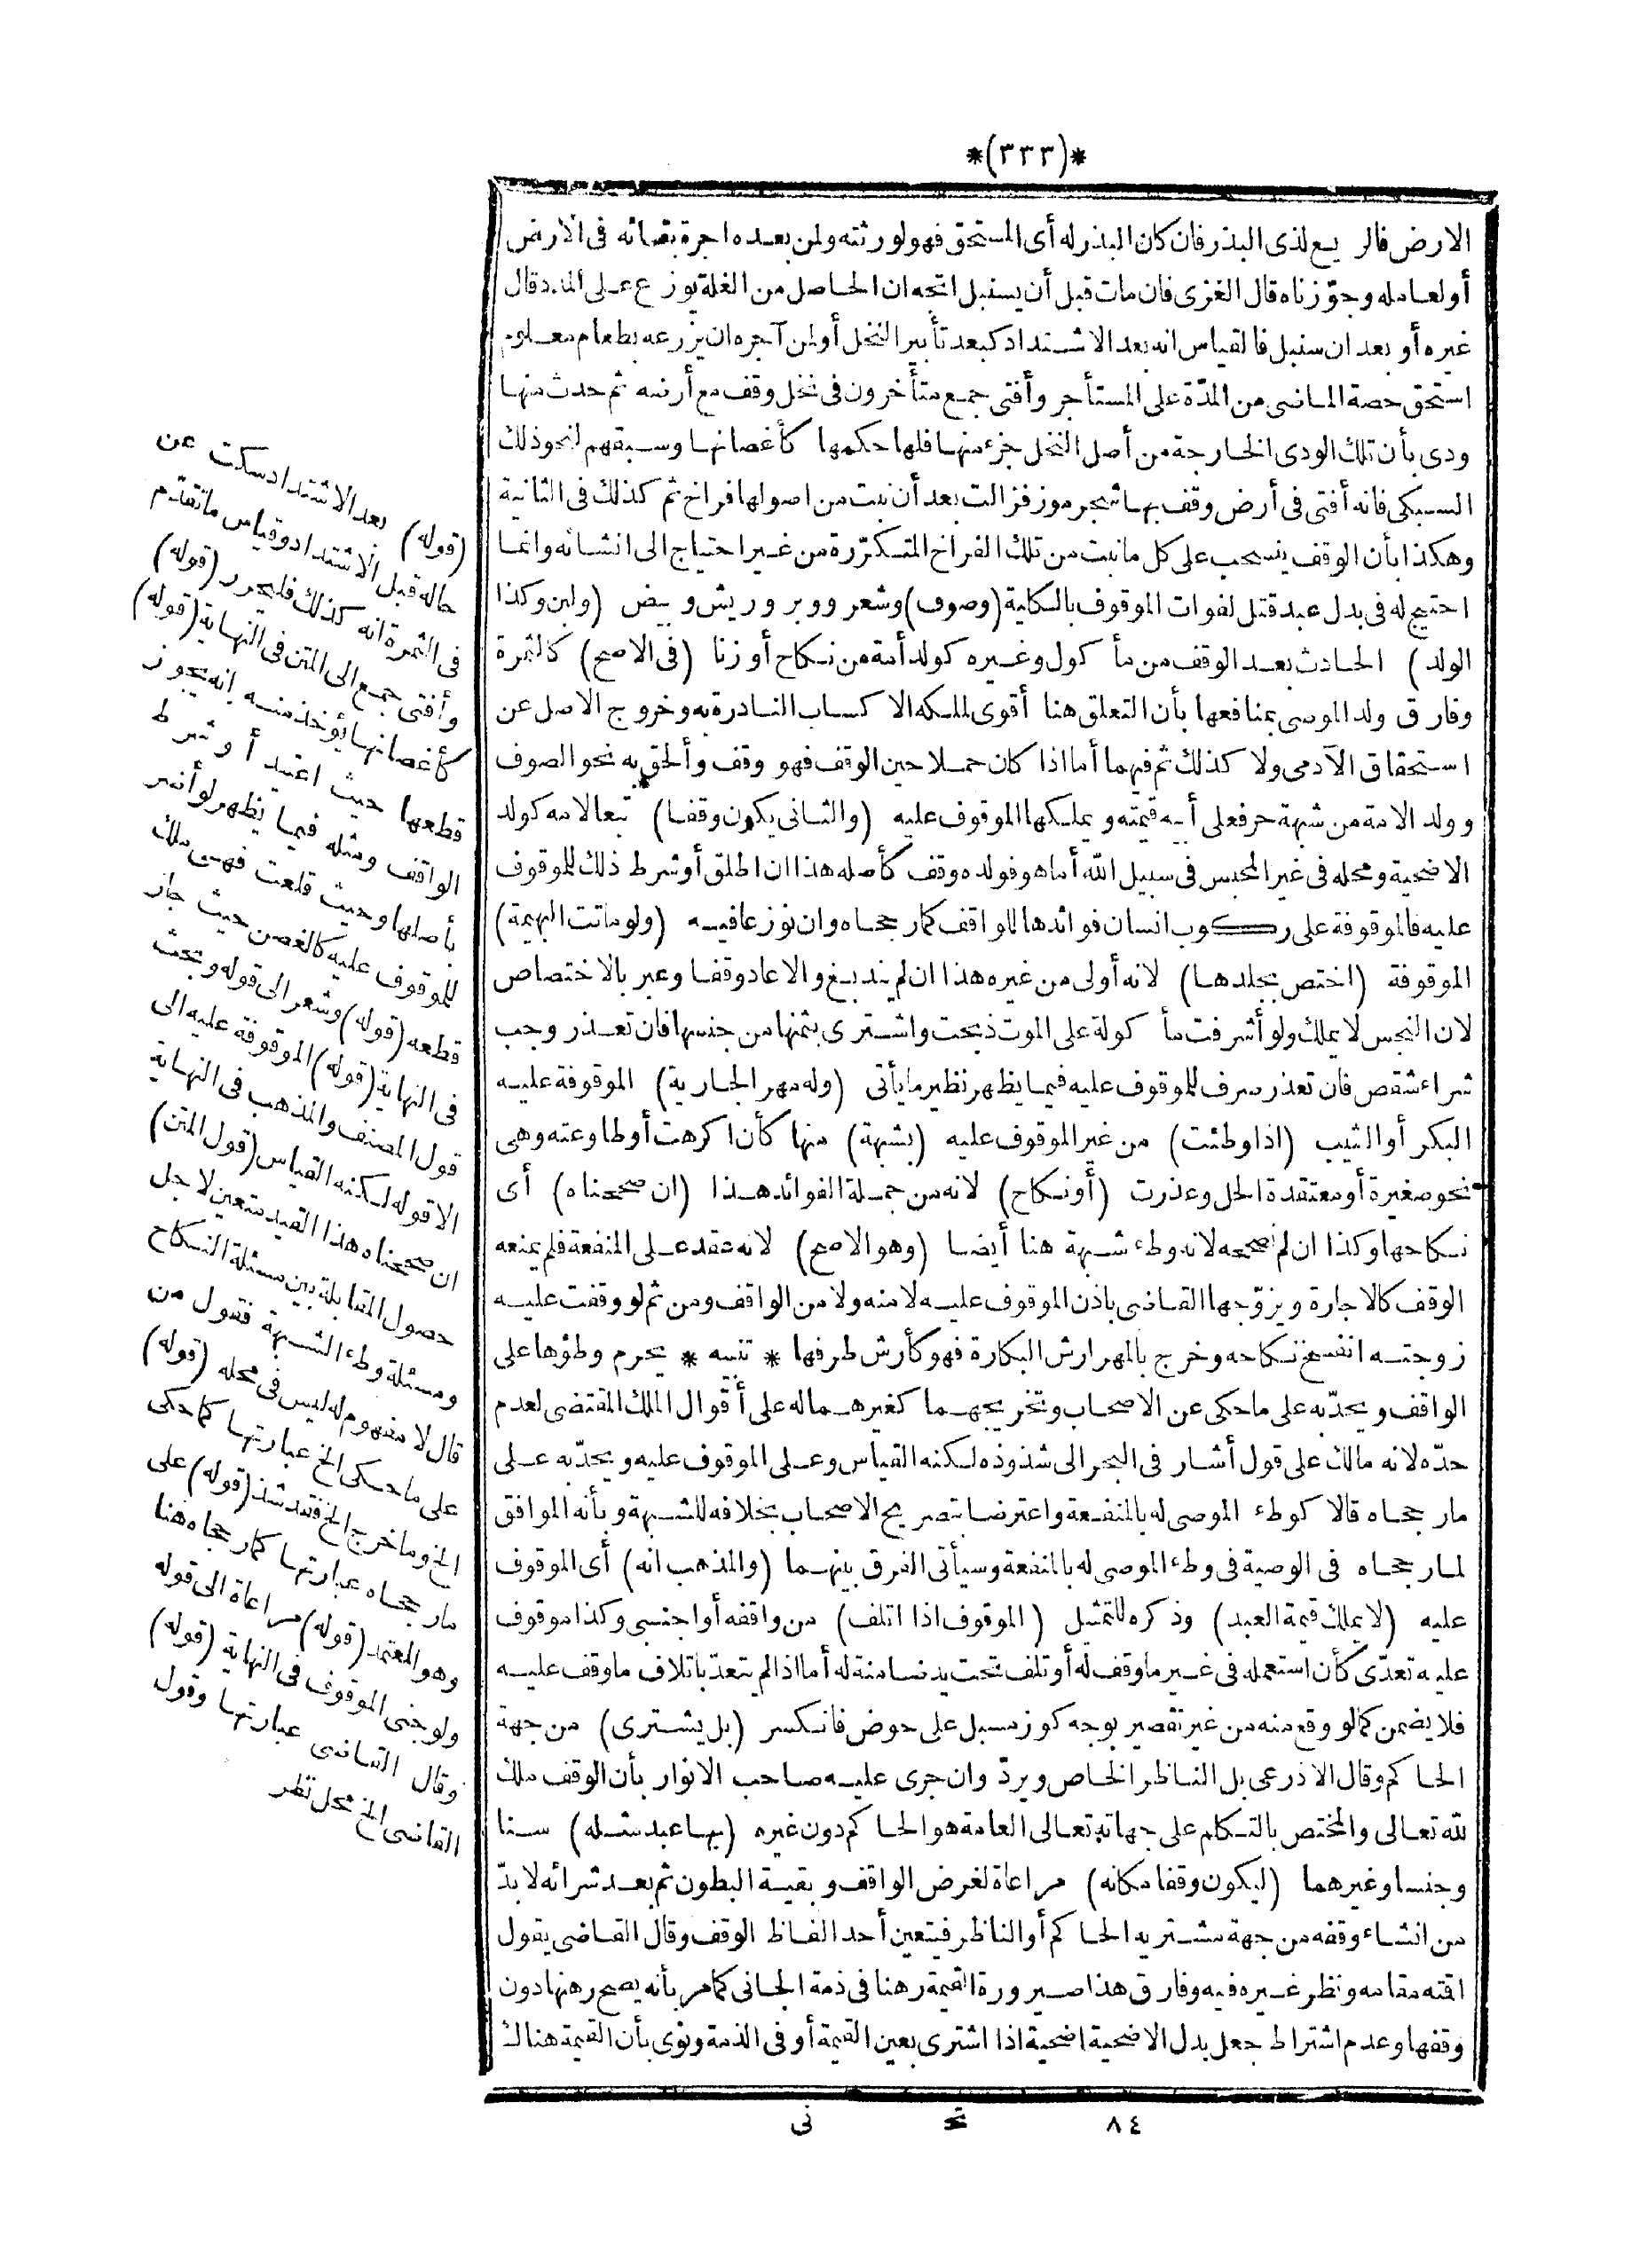 *(٣٣٣)*
الارض فالريع لذى البذر فان كان البذر له أى المستحق فهو لورثته ولمن بعده اجرة بقائه فى الارض
أو لعامله وجوّزناه قال الغزى فان مات قبل أن يسنبل اتجه ان الحاصل من الغلة يوزع على المدد قال
غيره أو بعد ان سنبل فالقياس انه بعد الاشتداد كبعد تأبير النخل أو لمن آجره ان يزرعه بطعام معلوم
استحق حصة الماضى من المدّة على المستأجر وأفتى جمع متأخرون فى نخل وقف مع أرضه ثم حدث منها
ودى بأن تلك الودى الخارجة من أصل النخل جزء منها فلها حكمها كأغصانها وسبقهم لنحو ذلك
السبكى فانه أفتى فى أرض وقف بها شجر موز فزالت بعد أن نبت من اصولها فراخ ثم كذلك فى الثانية
وهكذا بأن الوقف ينسحب على كل ما نبت من تلك الفراخ المتكررة من غير احتياج الى انشائه وانما
احتيج له فى بدل عبد قتل لفوات الموقوف بالكلية (وصوف) وشعر ووبر وريش وبيض (ولبن وكذا
الولد) الحادث بعد الوقف من مأكول وغيره كولد أمة من نكاح أو زنا (فى الاصح) كالثمرة
وفارق ولد الموصى بمنافعها بأن التعلق هنا أقوى لملكه الاكساب النادرة به وخروج الاصل عن
استحقاق الآدمى ولا كذلك ثم فيهما أما اذا كان حملا حين الوقف فهو وقف وألحق به نحو الصوف
وولد الامة من شبهة حر فعلى أبيه قيمته ويملكها الموقوف عليه (والثانى يكون وقفا) تبعا لامه كولد
الاضحية ومحله فى غير المحبس فى سبيل الله أما هو فولده وقف كأصله هذا ان اطلق أو شرط ذلك للموقوف
عليه فالموقوفة على ركوب انسان فوائدها للواقف كما رجحاه وان نوزعا فيه (ولو ماتت البهيمة)
الموقوفة (اختص بجلدها) لانه أولى من غيره هذا ان لم يندبغ والا عاد وقفا وعبر بالاختصاص
لان النجس لا يملك ولو أشرفت مأكولة على الموت ذبحت واشترى بثمنها من جنسها فان تعذر وجب
شراء شقص فان تعذر صرف للموقوف عليه فيما يظهر نظير ما يأتى (وله مهر الجارية) الموقوفة عليه
البكر أو الثيب (اذا وطئت) من غير الموقوف عليه (بشبهة) منها كأن اكرهت أو طاوعته وهى
نحو صغيرة أو معتقدة الحل وعذرت (أو نكاح) لانه من جملة الفوائد هذا (ان صححناه) أى
نكاحها وكذا ان لم نصححه لانه وطء شبهة هنا أيضا (وهو الاصح) لانه عقد على المنفعة فلم يمنعه
الوقف كالاجارة ويزوّجها القاضى باذن الموقوف عليه لا منه ولا من الواقف ومن ثم لو وقفت عليه
زوجته انفسخ نكاحه وخرج بالمهر ارش البكارة فهو كأرش طرفها * تنبيه * يحرم وطؤها على
الواقف ويحدّ به على ما حكى عن الاصحاب وتخريجهما كغيرهما له على أقوال الملك المقتضى لعدم
حدّه لانه مالك على قول أشار فى البحر الى شذوذه لكنه القياس وعلى الموقوف عليه ويحدّ به على
ما رجحاه قالا كوطء الموصى له بالمنفعة واعترضا بتصريح الاصحاب بخلافه للشبهة وبأنه الموافق
لما رجحاه فى الوصية فى وطء الموصى له بالمنفعة وسيأتى الفرق بينهما (والمذهب انه) أى الموقوف
عليه (لا يملك قيمة العبد) وذكره للتمثيل (الموقوف اذا اتلف) من واقفه أو اجنبى وكذا موقوف
عليه تعدّى كأن استعمله فى غير ما وقف له أو تلف تحت يد ضامنة له أما اذا لم يتعدّ باتلاف ما وقف عليه
فلا يضمن كما لو وقع منه من غير تقصير بوجه كوز مسبل على حوض فانكسر (بل يشترى) من جهة
الحاكم وقال الاذرعى بل الناظر الخاص ويردّ وان جرى عليه صاحب الانوار بأن الوقف ملك
لله تعالى والمختص بالتكلم على جهاته تعالى العامة هو الحاكم دون غيره (بها عبد مثله) سنا
وجنسا وغيرهما (ليكون وقفا مكانه) مراعاة لغرض الواقف وبقية البطون ثم بعد شرائه لا بدّ
من انشاء وقفه من جهة مشتريه الحاكم أو الناظر فيتعين أحد الفاظ الوقف وقال القاضى يقول
اقته مقامه ونظر غيره فيه وفارق هذا صيرورة القيمة رهنا فى ذمة الجانى كما مر بأنه يصح رهنها دون
وقفها وعدم اشتراط جعل بدل الاضحية اضحية اذا اشترى بعين القيمة أو فى الذمة ونوى بأن القيمة هناك
(قوله) بعد الاشتداد سكت عن
حاله قبل الاشتداد وقياس ما تقدّم
فى الثمرة انه كذلك فليحرر (قوله)
وأفتى جمع الى المتن فى النهاية (قوله)
كأغصانها يؤخذ منه انه يجوز
قطعها حيث اعتيد أو شرط
الواقف ومثله فيما يظهر لو أضر
بأصلها وحيث قلعت فهى ملك
للموقوف عليه كالغصن حيث جاز
قطعه (قوله) وشعر الى قوله وبحث
فى النهاية (قوله) الموقوفة عليه الى
قول المصنف والمذهب فى النهاية
الا قوله لكنه القياس (قول المتن)
ان صححناه هذا القيد متعين لاجل
حصول المقابلة بين مسئلة النكاح
ومسئلة وطء الشبهة فقول من
قال لا مفهوم له ليس فى محله (قوله)
على ما حكى الخ عبارتها كما حكى
الخ وما خرج الخ فقد شذ (قوله) على
ما رجحاه عبارتها كما رجحاه هنا
وهو المعتمد (قوله) مراعاة الى قوله
ولو جنى الموقوف فى النهاية (قوله)
وقال القاضى عبارتها وقول
القاضى الخ محل نظر
٨٤ تح نى